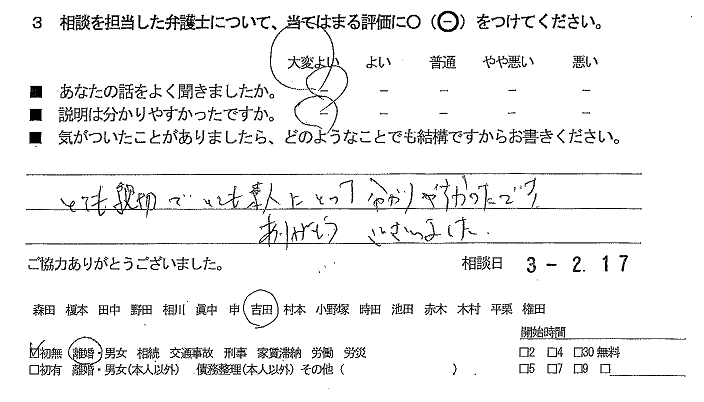 3 相談を担当した弁護士について、当てはまる評価に○(⊖)をつけてください。
大変よい よい 普通 やや悪い 悪い
■ あなたの話をよく聞きましたか。 － － － － －
■ 説明は分かりやすかったですか。 － － － － －
■ 気がついたことがありましたら、どのようなことでも結構ですからお書きください。
とても親切でとても素人にとって分かりやすかったです
ありがとう ございました.
ご協力ありがとうございました。 相談日 3-2.17
森田 榎本 田中 野田 相川 眞中 申 吉田 村本 小野塚 時田 池田 赤木 木村 平栗 権田
開始時間
☑初無 離婚・男女 相続 交通事故 刑事 家賃滞納 労働 労災 □2 □4 □30 無料
□初有 離婚・男女(本人以外) 債務整理(本人以外) その他 ( ) □5 □7 □9 □